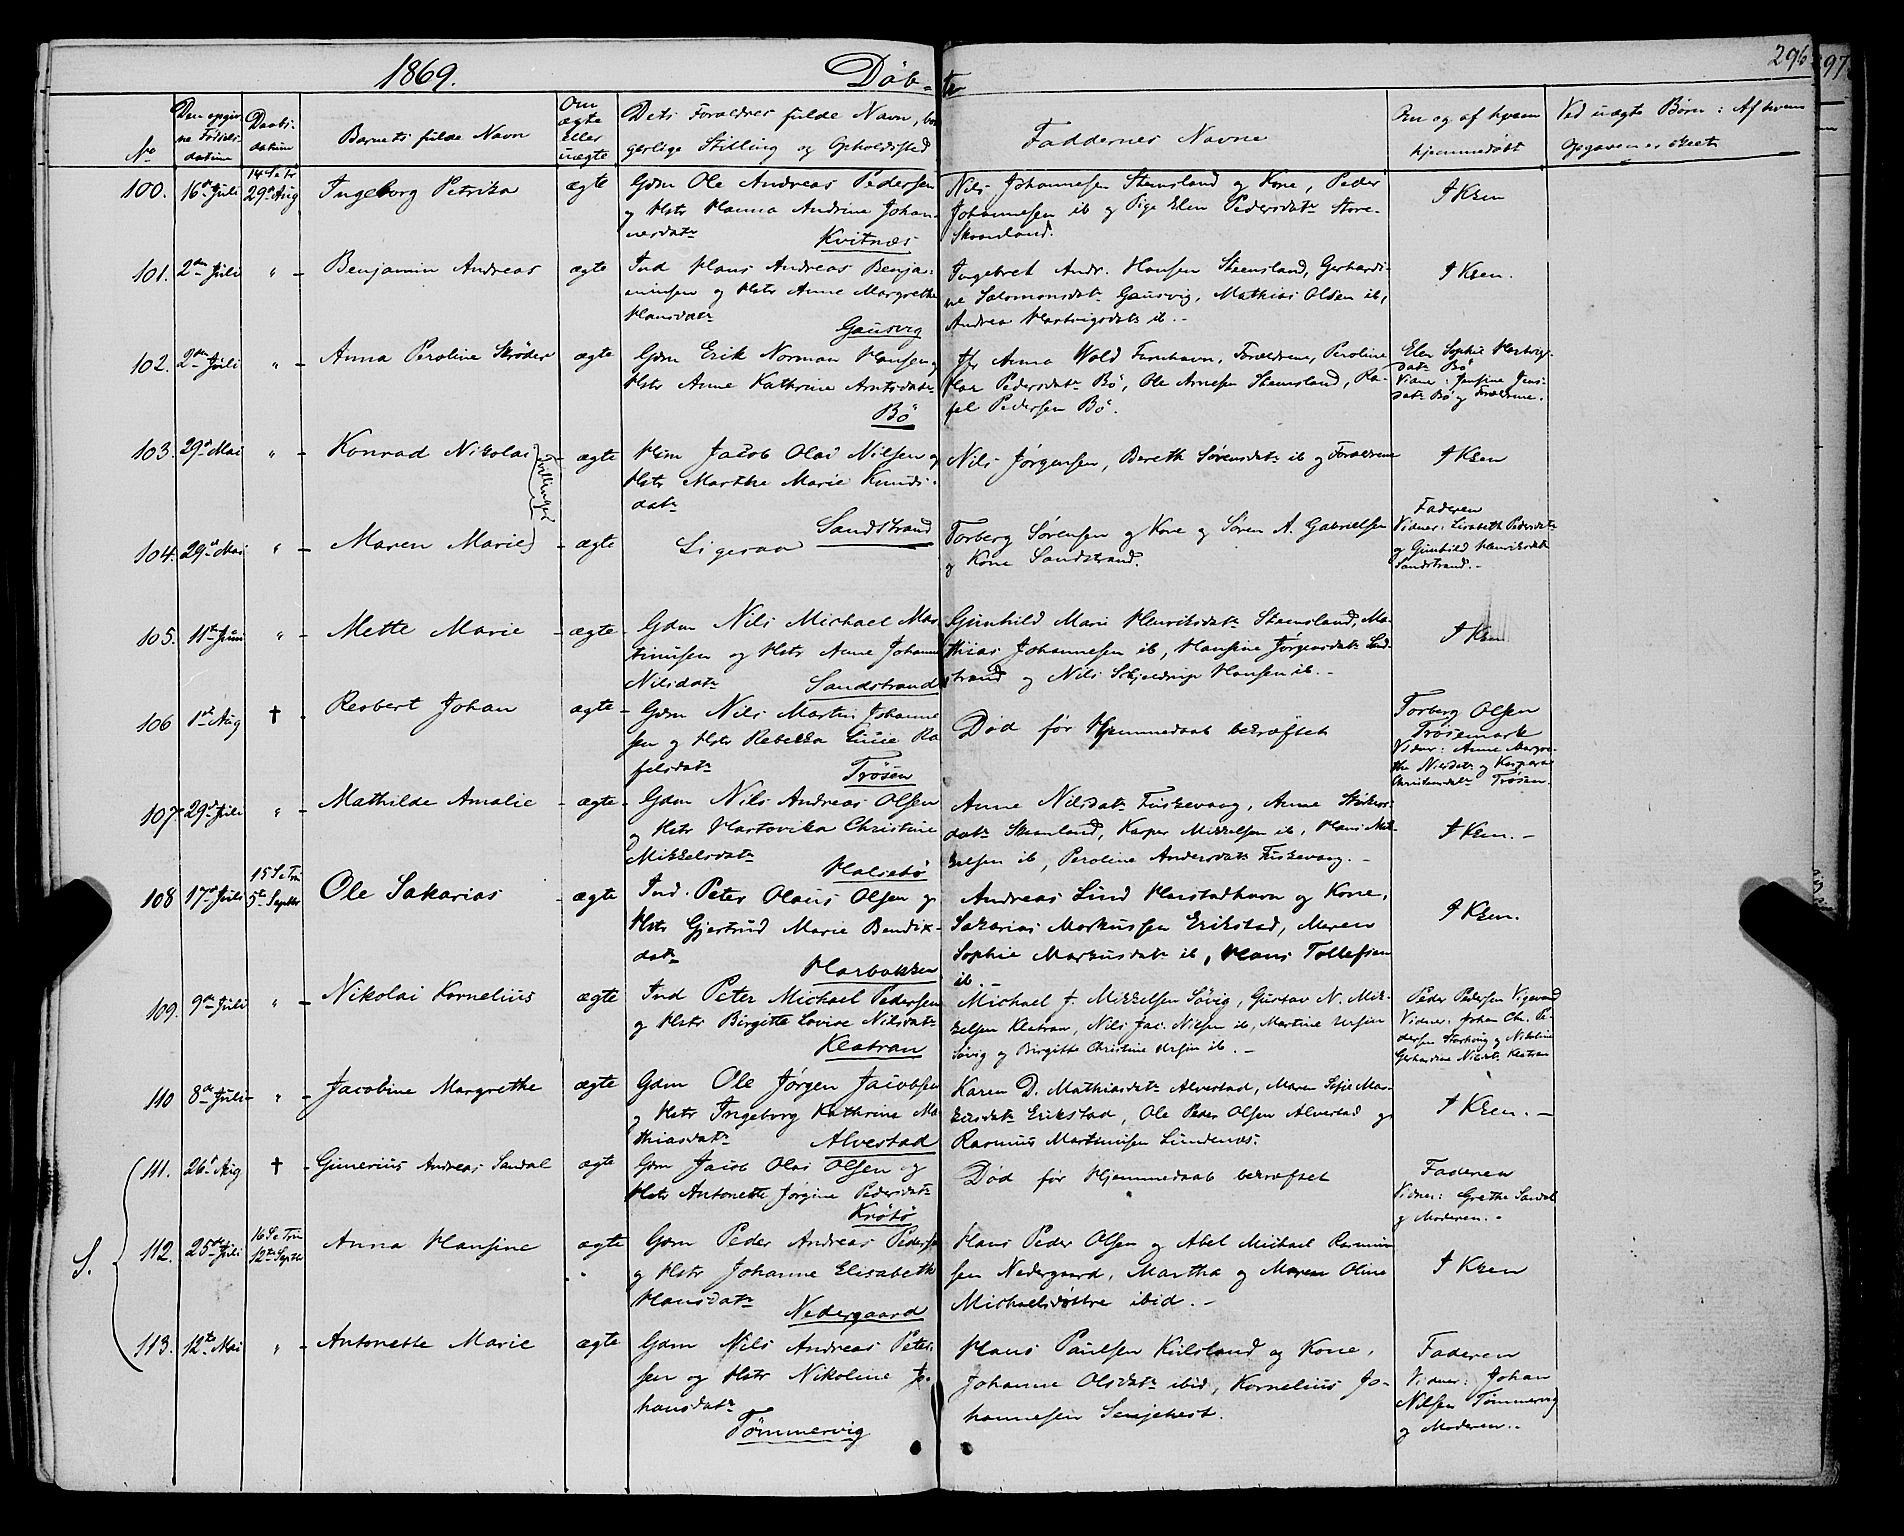 1869. Døb-te 296 97
No
Den opgivne Fødselsdatum
Daabsdatum
Barnets fulde Navn
Om ægte eller uægte
Dets Forældres fulde Navn, borgerlige Stilling og Opholdssted
Faddernes Navne
Om og af hvem hjemmedøbt
Ved uægte Børn: Af hvem Opgaven er skeet
100. 16de Juli 14 S e Tr 29de Aug Ingeborg Petrika ægte Gdm Ole Andreas Pedersen
og Hstr Hanna Andrine Johan-
nesdatr Kvitnæs
Nils Johannesen Stensland og Kone, Peder
Johannesen ib og Pige Elen Pedersdatr Store-
Skaanland.
I Kken
101. 2den Juli " - Benjamin Andreas ægte Ind Hans Andreas Benja-
minsen og Hstr Anne Margrethe
Hansdatr Gausvig
Ingebret Andr. Hansen Steensland, Gerhardi-
ne Salomonsdatr Gausvig, Mathias Olsen ib,
Andrea Hartvigsdatr ib. -
I Kken.
102. 2den Juli " - Anna Peroline Skrøder ægte Gdm Erik Norman Hansen og
Hstr Anne Kathrine Arntsdatr
Bö
Jfr Anna Wold Havnhavn, Forældrene, Peroline
Pedersdatr Bö, Ole Arnesen Stensland, Ra-
fel Pedersen Bö.
Elen Sophie Hartvigs-
datr Bö
Vidner: Jensine Jens-
datr Bö og Forældrene.
103. 29de Mai " - Konrad Nikolai - ægte Hmm Jacob Olai Nilsen og
Hstr Marthe Marie Knuds-
datr
Sandstrand
Nils Jørgensen, Bereth Sørensdatr ib og Forældrene
I Kken
Tvillinger
104. 29de Mai " - Maren Marie - ægte Ligesaa
Torberg Sørensen og Kone og Søren A. Gabrielsen
og Kone Sandstrand.
Faderen
Vidner: Lisabeth Pedersdatr
og Gunhild Henriksdatr
Sandstrand. -
105. 11te Juni " - Mette Marie - ægte - Gdm Nils Michael Mar-
tinussen og Hstr Anne Johanna
Nilsdatr Sandstrand
Gunhild Mari Henriksdatr Stensland, Ma-
thias Johannesen ib, Hansine Jørgensdatr Sand-
strand og Nils Schjeldrup Hansen ib. -
I Kken
106 1ste Aug † . Reobert Johan ægte - Gdm Nils Martin Johanne-
sen og Hstr Rebekka Lucie Ra-
felsdatr Trøsen
Død før Hjemmedaab bekræftet
Torberg Olsen
Trøsemark
Vidner: Anne Margre-
the Nilsdatr og Kasperæ
Christensdatr Trøsen.
107 29de Juli " - Mathilde Amalie - ægte - Gdm Nils Andreas Olsen
og Hstr Hartovika Christine
Mikkelsdatr Halsebø
Anne Nilsdatr Fuskevaag, Anne
datr Skaanland, Kasper Mikkelsen ib, Hans Mik-
kelsen ib, Peroline Andersdatr Fuskevaag. -
I Kken. -
108 17de Juli 15 S e Tri 5te Septbr Ole Sakarias - ægte Ind. Peter Olaus Olsen og
Hstr Gjertrud Marie Bendix-
datr
Harbakken
Andreas Lund Harstadhavn og Kone,
Sakarias Markussen Erikstad, Maren
Sophie Markusdatr ib, Hans Tollefsen
ib. -
I Kken.
109. 9de Juli " - Nikolai Kornelius ægte Ind Peter Michael Pedersen
og Hstr Birgitte Lovise Nilsdatr
Kleatran
Michael J. Mikkelsen Søvig, Gustav N. Mik-
kelsen Kleatran, Nils Jac. Nilsen ib, Martine Ursin
Søvig og Birgitte Christine Ursin ib. -
Peder Pedersen Vigevand
Vidner: Johan Chr. Pe-
dersen Storkvig og Nikoline
Gerhardine Nilsdtr Kleatran
110 8de Juli - " - Jacobine Margrethe ægte Gdm Ole Jørgen Jacobsen
og Hstr Ingeborg Kathrine Ma-
thiasdatr Alvestad
Karen D. Mathiasdatr Alvestad, Maren Sofie Mar-
kusdatr Erikstad, Ole Peder Olsen Alvestad og
Rasmus Martinusen Lundenæs.
I Kken. -
111. 26de Aug † - Gunerius Andreas Sandal ægte Gdm Jacob Olai Olsen og
Hstr Antonette Jørgine Pedersdatr
Krøtø
Død før Hjemmedaab bekræftet
Faderen
Vidner: Grethe Sandal
og Moderen. -
S.
112. 25de Juli 16 S e Tri 12te Septbr Anna Hansine ægte Gdm Peder Andreas Pedersen
og Hstr Johanne Elisabeth
Hansdatr Nedergaard
Hans Peder Olsen og Abel Michael Rasmus-
sen Nedergaard, Martha og Maren Oline
Michaelsdøttre ibid. -
I Kken
113. 12te Mai " - Antonette Marie ægte Gdm Nils Andreas Peter-
sen og Hstr Nikoline Jo-
hansdatr
Tømmervig
Hans Paulsen Kulsland og Kone,
Johanne Olsdatr ibid, Kornelius Jo-
hannesen Senjehest.
Faderen
Vidner: Johan
Nilsen Tømmervig
og Moderen. -